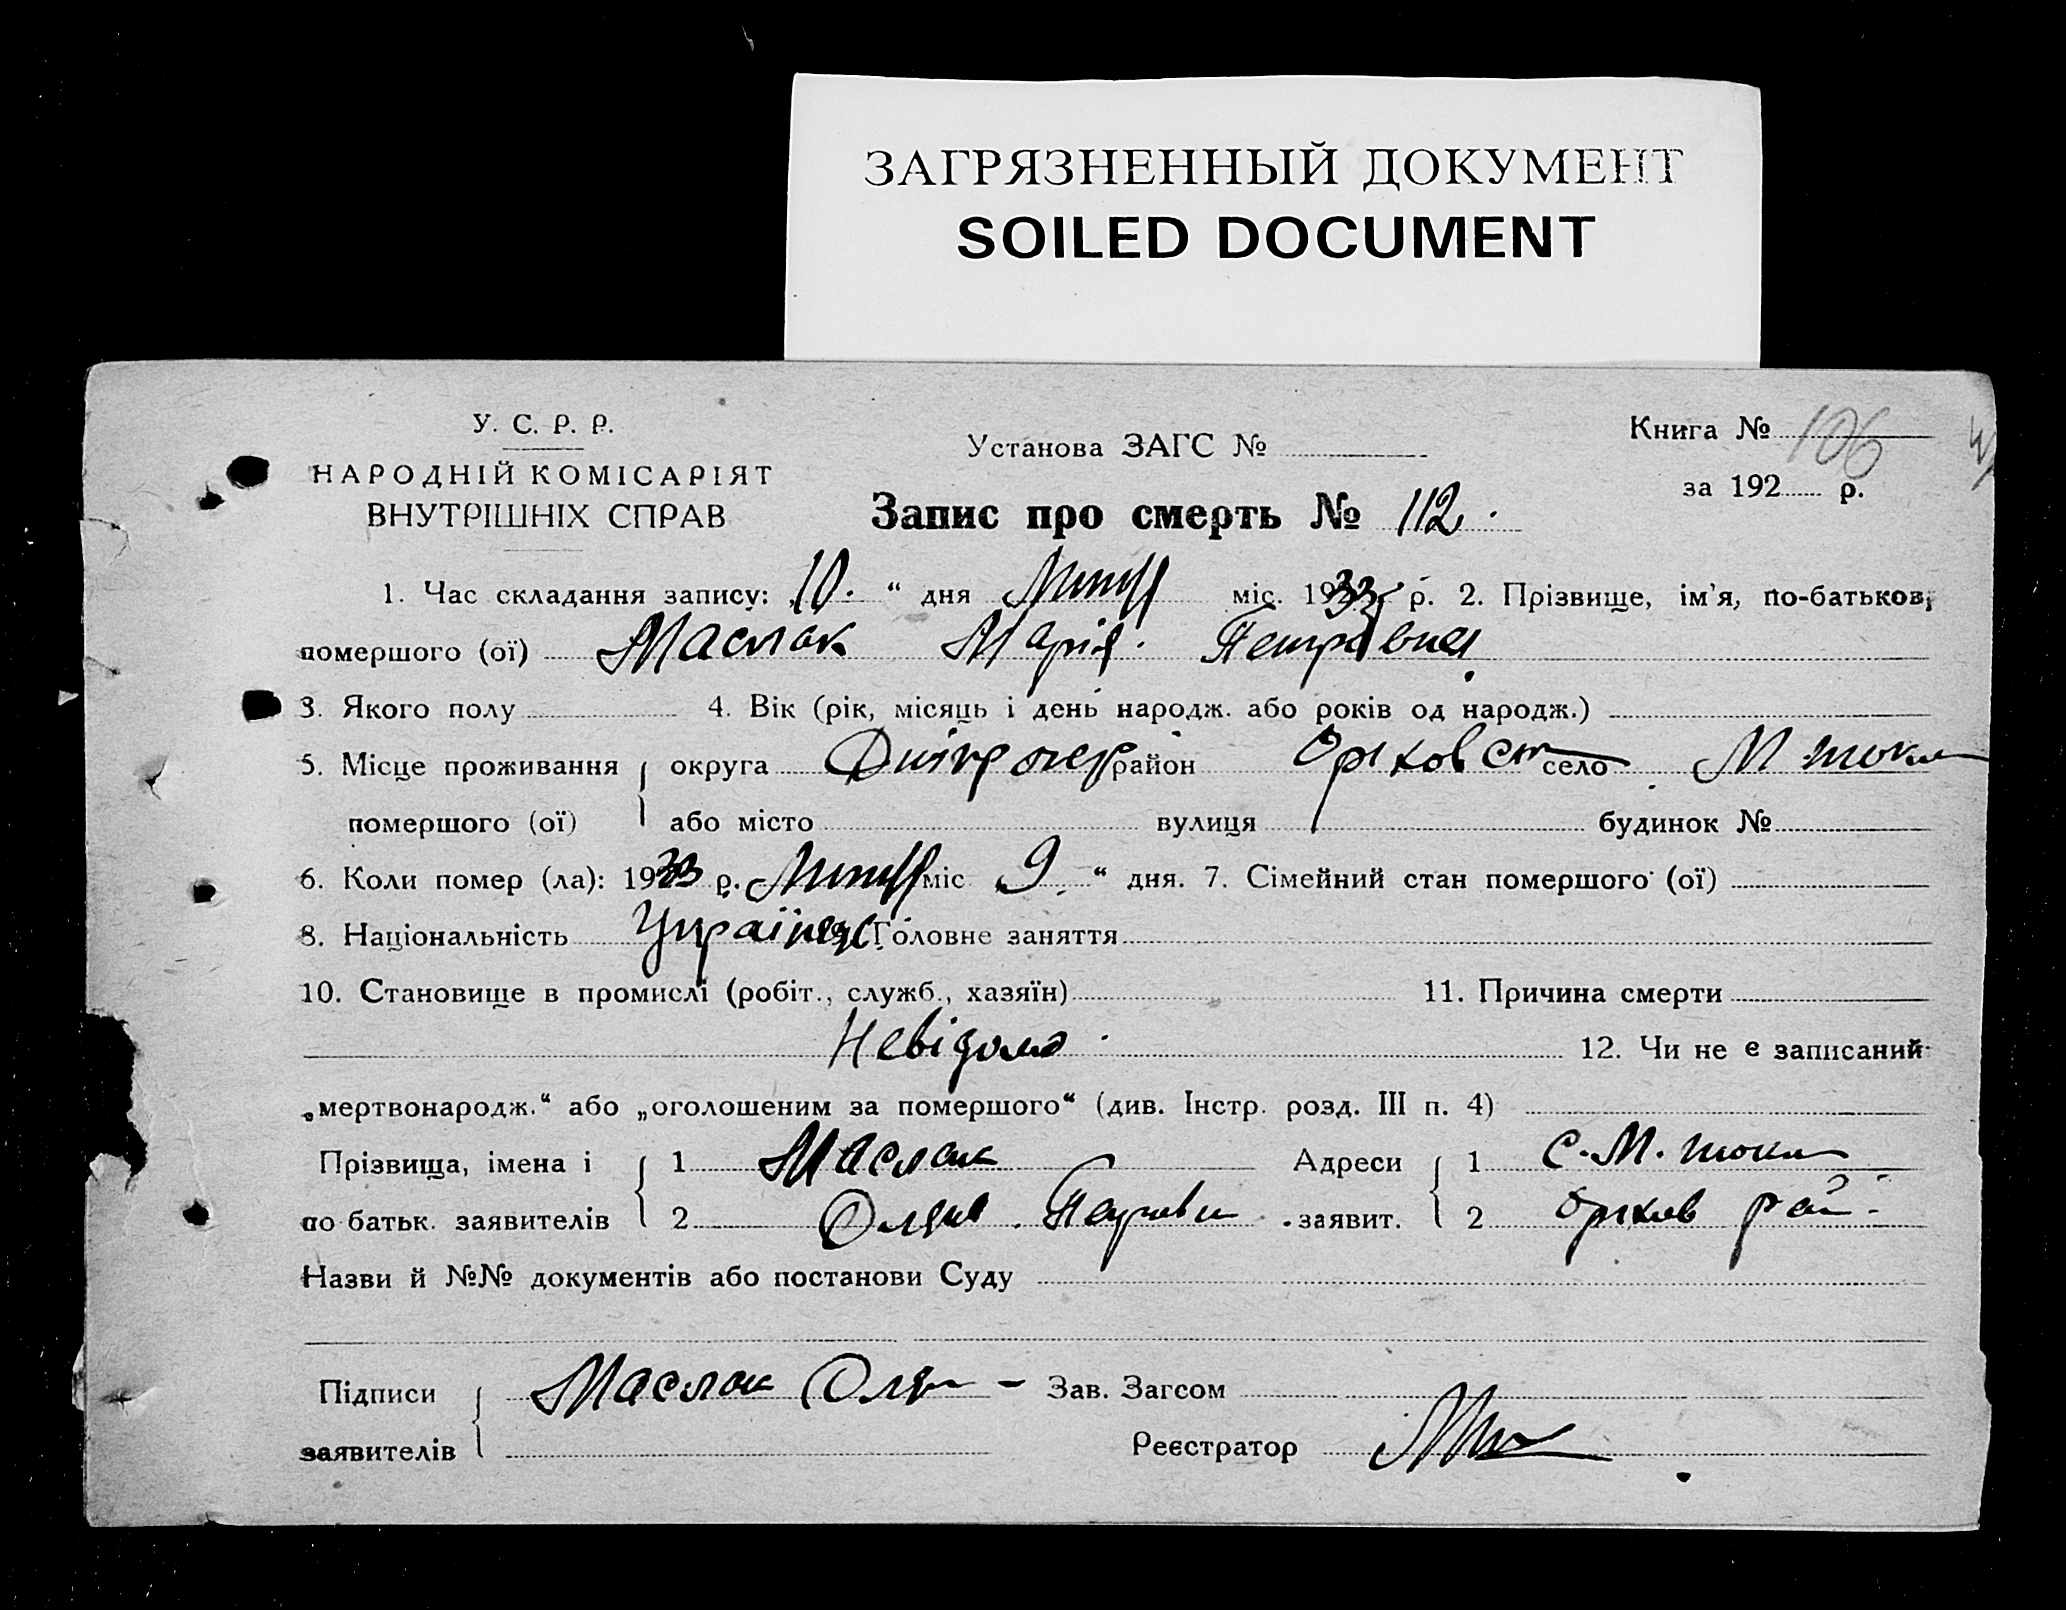 ЗАГРЯЗНЕННЫЙ ДОКУМЕНТ
SOILED DOCUMENT
У. С. Р. Р.
НАРОДНІЙ КОМІСАРІЯТ
ВНУТРІШНІХ СПРАВ
Установа ЗАГС №
Книга № 106
за 192 р.
Запис про смерть № 112.
1. Час складання запису: 10. “ дня міс. 1933 р. 2. Прізвище, ім'я, по-батькові
помершого (ої) Маслак Марія Петровна
3. Якого полу 4. Вік (рік, місяць і день народж. або років од народж.)
5. Місце проживання округа Дніпропер район Оріховск село М токм
помершого (ої) або місто вулиця будинок №
6. Коли помер (ла): 1933 р. міс 9. “ дня. 7. Сімейний стан помершого (ої)
8. Національність Українц Головне заняття
10. Становище в промислі (робіт., служб., хазяїн) 11. Причина смерти
Невідомо. 12. Чи не є записаний
„мертвонародж.“ або „оголошеним за помершого“ (див. Інстр. розд. III п. 4)
Прізвища, імена і 1 Маслак Адреси 1 С. М. токм
по батьк. заявителів 2 заявит. 2 Оріхов рай.
Назви й №№ документів або постанови Суду
Підписи Маслак Оля – Зав. Загсом
заявителів Реєстратор